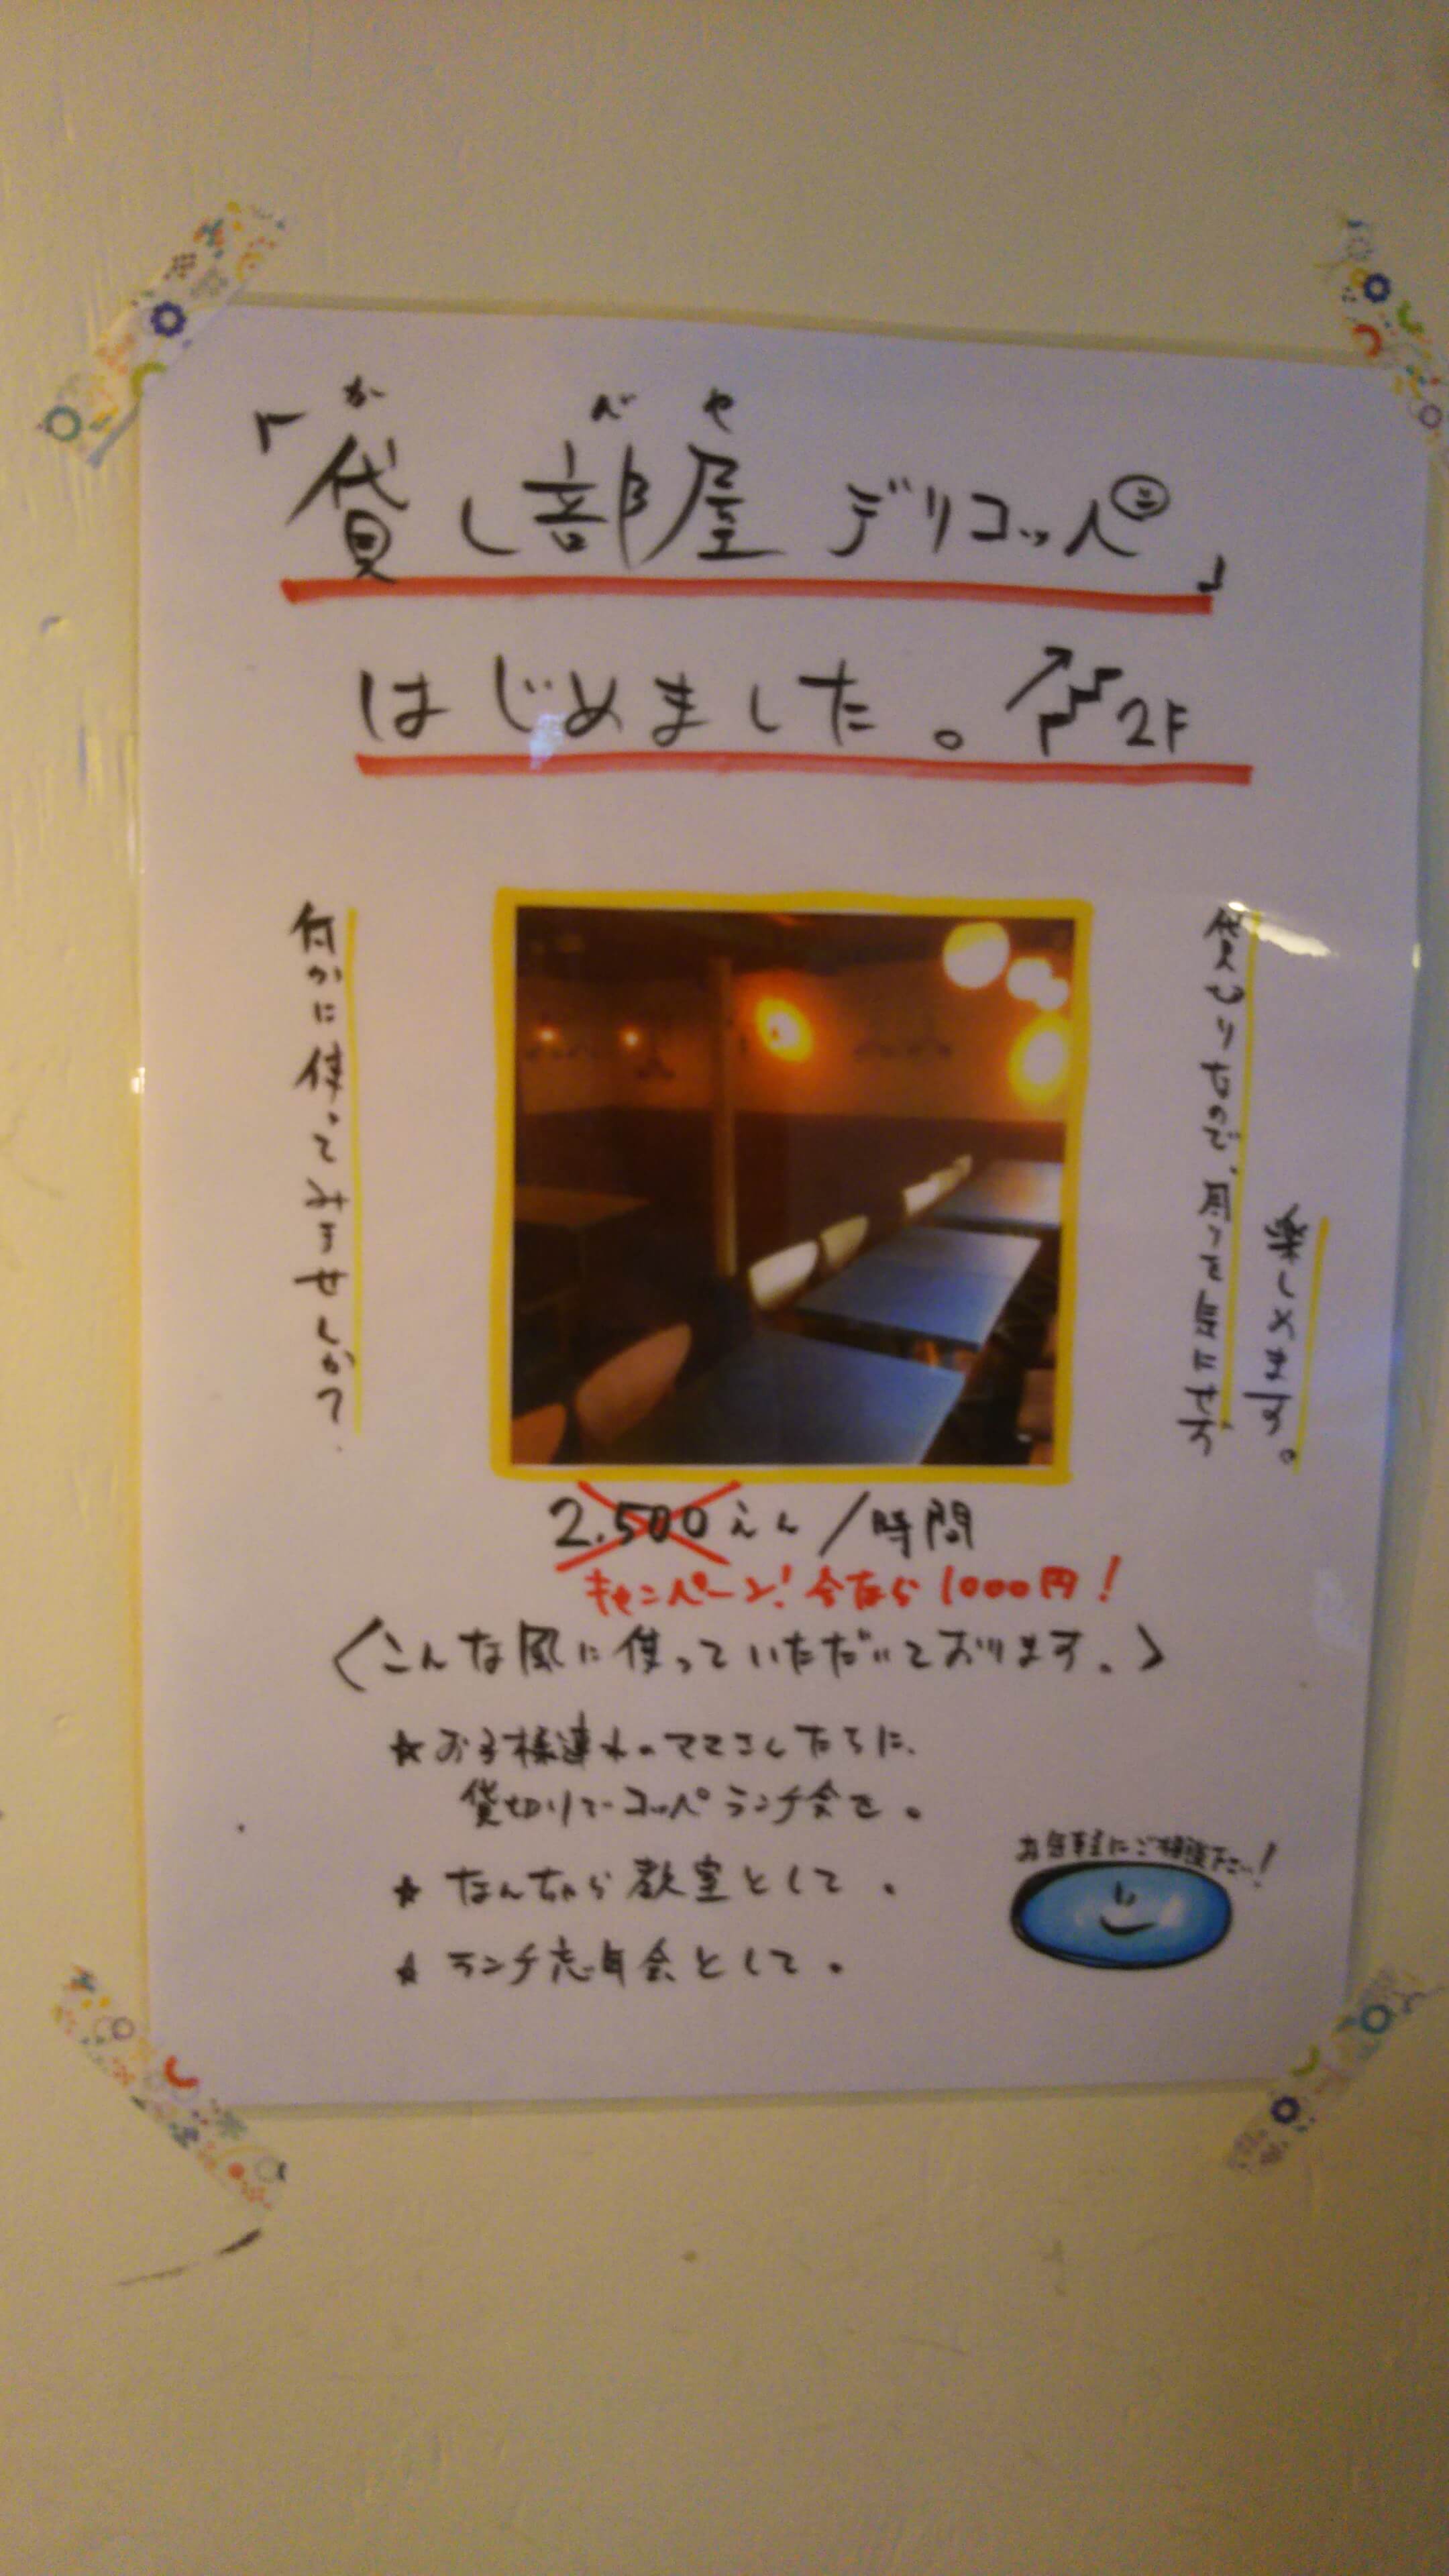 か べ や
「貸し部屋 デリコッペ」
はじめました。 2F
貸切りなので、周りを気にせず
楽しめます。
何かに使ってみませんか?
2.500えん/時間
キャンペーン!今なら1000円!
〈こんな風に使っていただいております。〉
★お子様連れのママさんたちに、
貸切りでコッペランチ会を。
★なんちゃら教室として。
★ランチ忘年会として。
お気軽にご相談下さい!